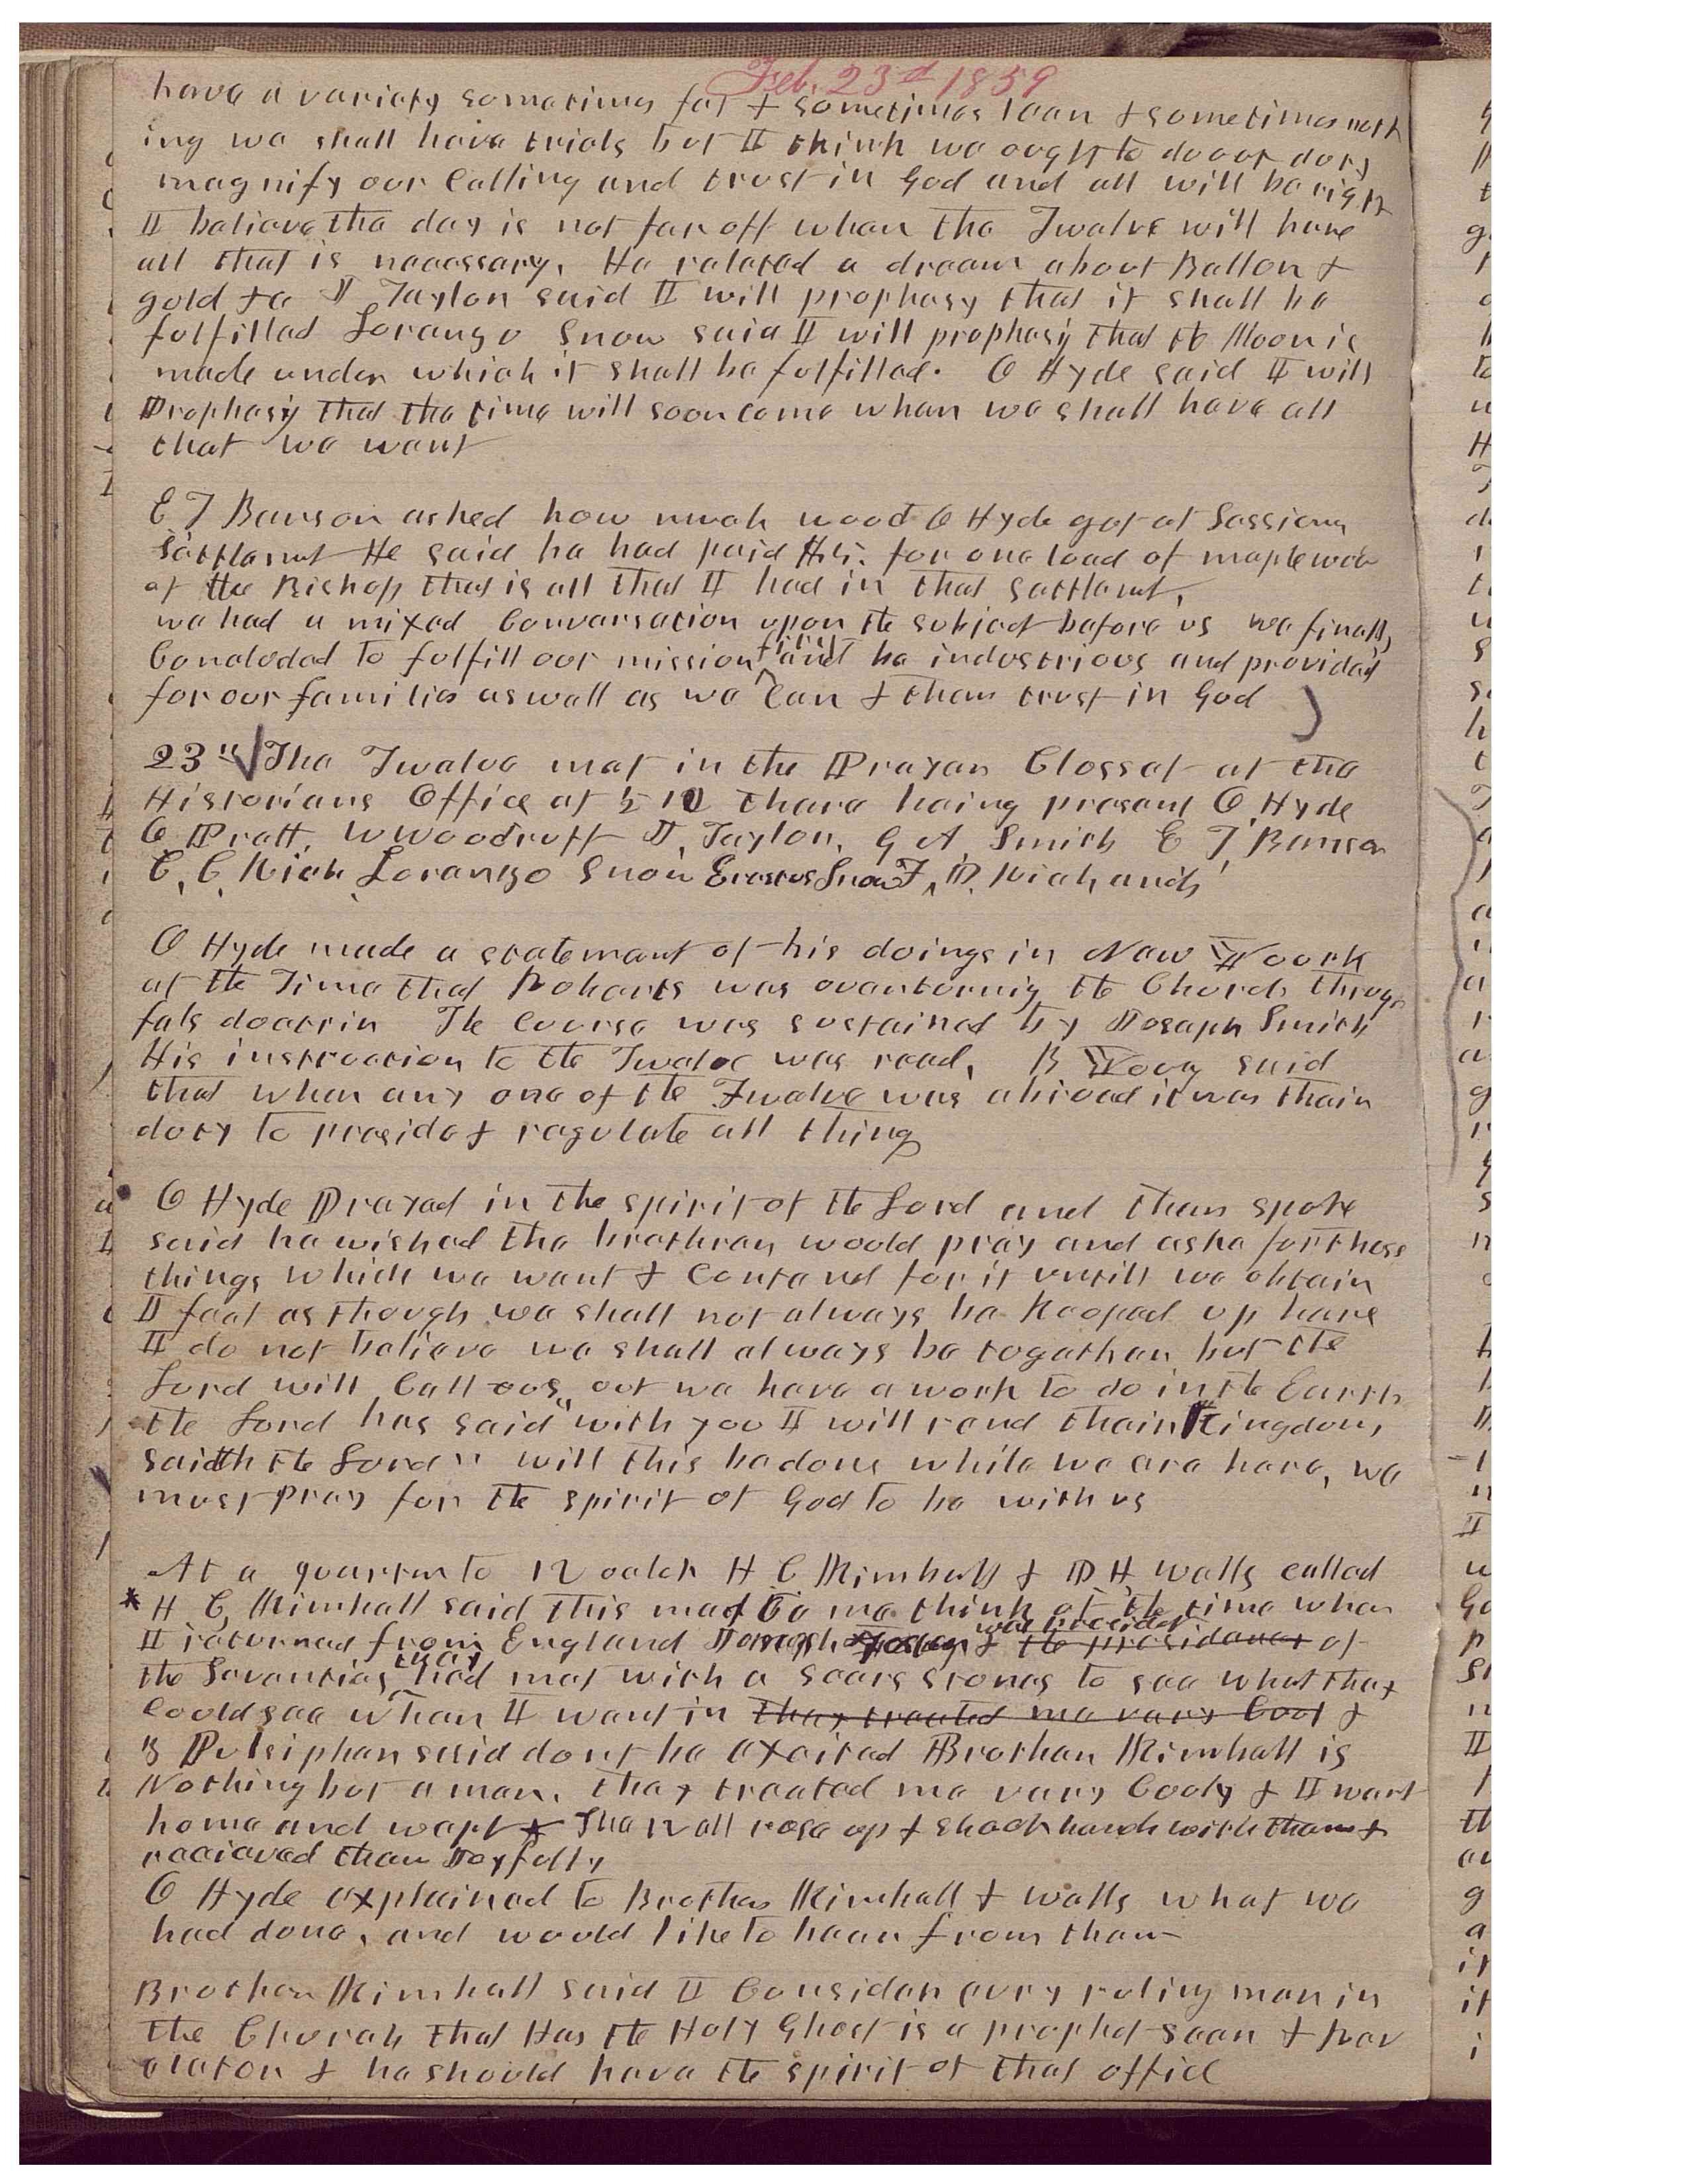 Feb. 23d 1859
have a variety sometimes fat & sometimes lean & sometimes noth
ing we shall have trials but I think we ought to do our duty
magnify our Calling and trust in God and all will be right
I believe the day is not far off when the Twelve will have
all that is necessary. He related a dream about Ballon &
gold &c J Taylor said I will prophesy that it shall be
fulfilled Lorenzo Snow said I will prophesy that the Moon is
made under which it shall be fulfilled. O Hyde said I will
Prophesy that the time will soon come when we shall have all
that we want
E T Benson asked how much wood O Hyde got at Sessions
Settlement He said he had paid for one load of maple wood
of the Bishop that is all that I had in that Settlement,
we had a mixed Conversation upon the subject before us we finally
Concluded to fulfill our mission first and be industrious and provided
for our families as well as we Can & then trust in God
23rd The Twelve met in the Prayer Closset at the
Historians Office at 1/2 10 there being present O Hyde
O Pratt, W Woodruff J, Taylor, G A Smith E T, Benson
C, C, Rich Lorenzo Snow Erastus Snow F, D. Richards
O Hyde made a statement of his doings in New Yoork
at the Time that Roberts was overturnig the Church through
fals doctrin The Course was sustained by Joseph Smith
His instruction to the Twelve was read, B Young said
that when any one of the Twelve was abroad it was their
duty to preside & regulate all thing
O Hyde Prayed in the spirit of the Lord and then spoke
said he wished the brethren would pray and aske for those
things which we want & Contend for it untill we obtain
I feel as though we shall not always be Kooped up here
I do not believe we shall always be together but the
Lord will Call us out we have a work to do in the Earth
the Lord has said "with you I will rend their Kingdom,
saidth the Lord" will this be done while we are here, we
must pray for the spirit of God to be with us
At a quarter to 12 oclok H C Kimball & D H, Wells called
* H C, Kimball said this mad to me think of the time when
I returned from England Joseph Young & was presideded the presidency of
the Seventies they had met with a Seers stones to see what they
Could see When I went in they treated me very Cool &
Z Pulsipher said dont be excited Brother Kimball is
Nothing but a man. they treated me very Cooly & I went
home and wept * The 12 all rose up & shook hands with them &
recieved them Joyfully
O Hyde explained to Brother Kimball & Wells what we
had done, and would like to hear from them
Brother Kimball said I Consider evry ruling man in
the Church that Has the Holy Ghost is a prophet seer & Rev
elator & he should have the spirit of that office